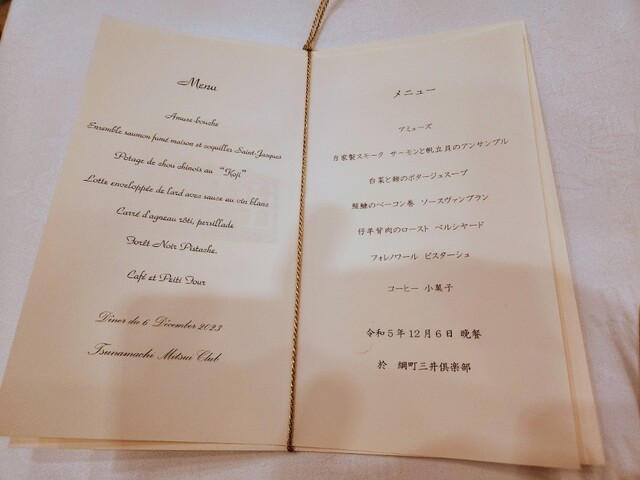 Menu
Amuse-bouche
Ensemble saumon fumé maison et coquilles Saint-Jacques
Potage de chou chinois au "Koji"
Lotte enveloppée de lard avec sauce au vin blanc
Carré d'agneau rôti, persillade
Forêt Noir Pistache.
Café et Petit Four
Dîner du 6 Décembre 2023
Tsunamachi Mitsui Club
メニュー
アミューズ
自家製スモーク サーモンと帆立貝のアンサンブル
白菜と麹のポタージュスープ
鮟鱇のベーコン巻 ソースヴァンブラン
仔羊背肉のロースト ペルシヤード
フォレノワール ピスターシュ
コーヒー 小菓子
令和5年12月6日 晩餐
於 綱町三井倶楽部